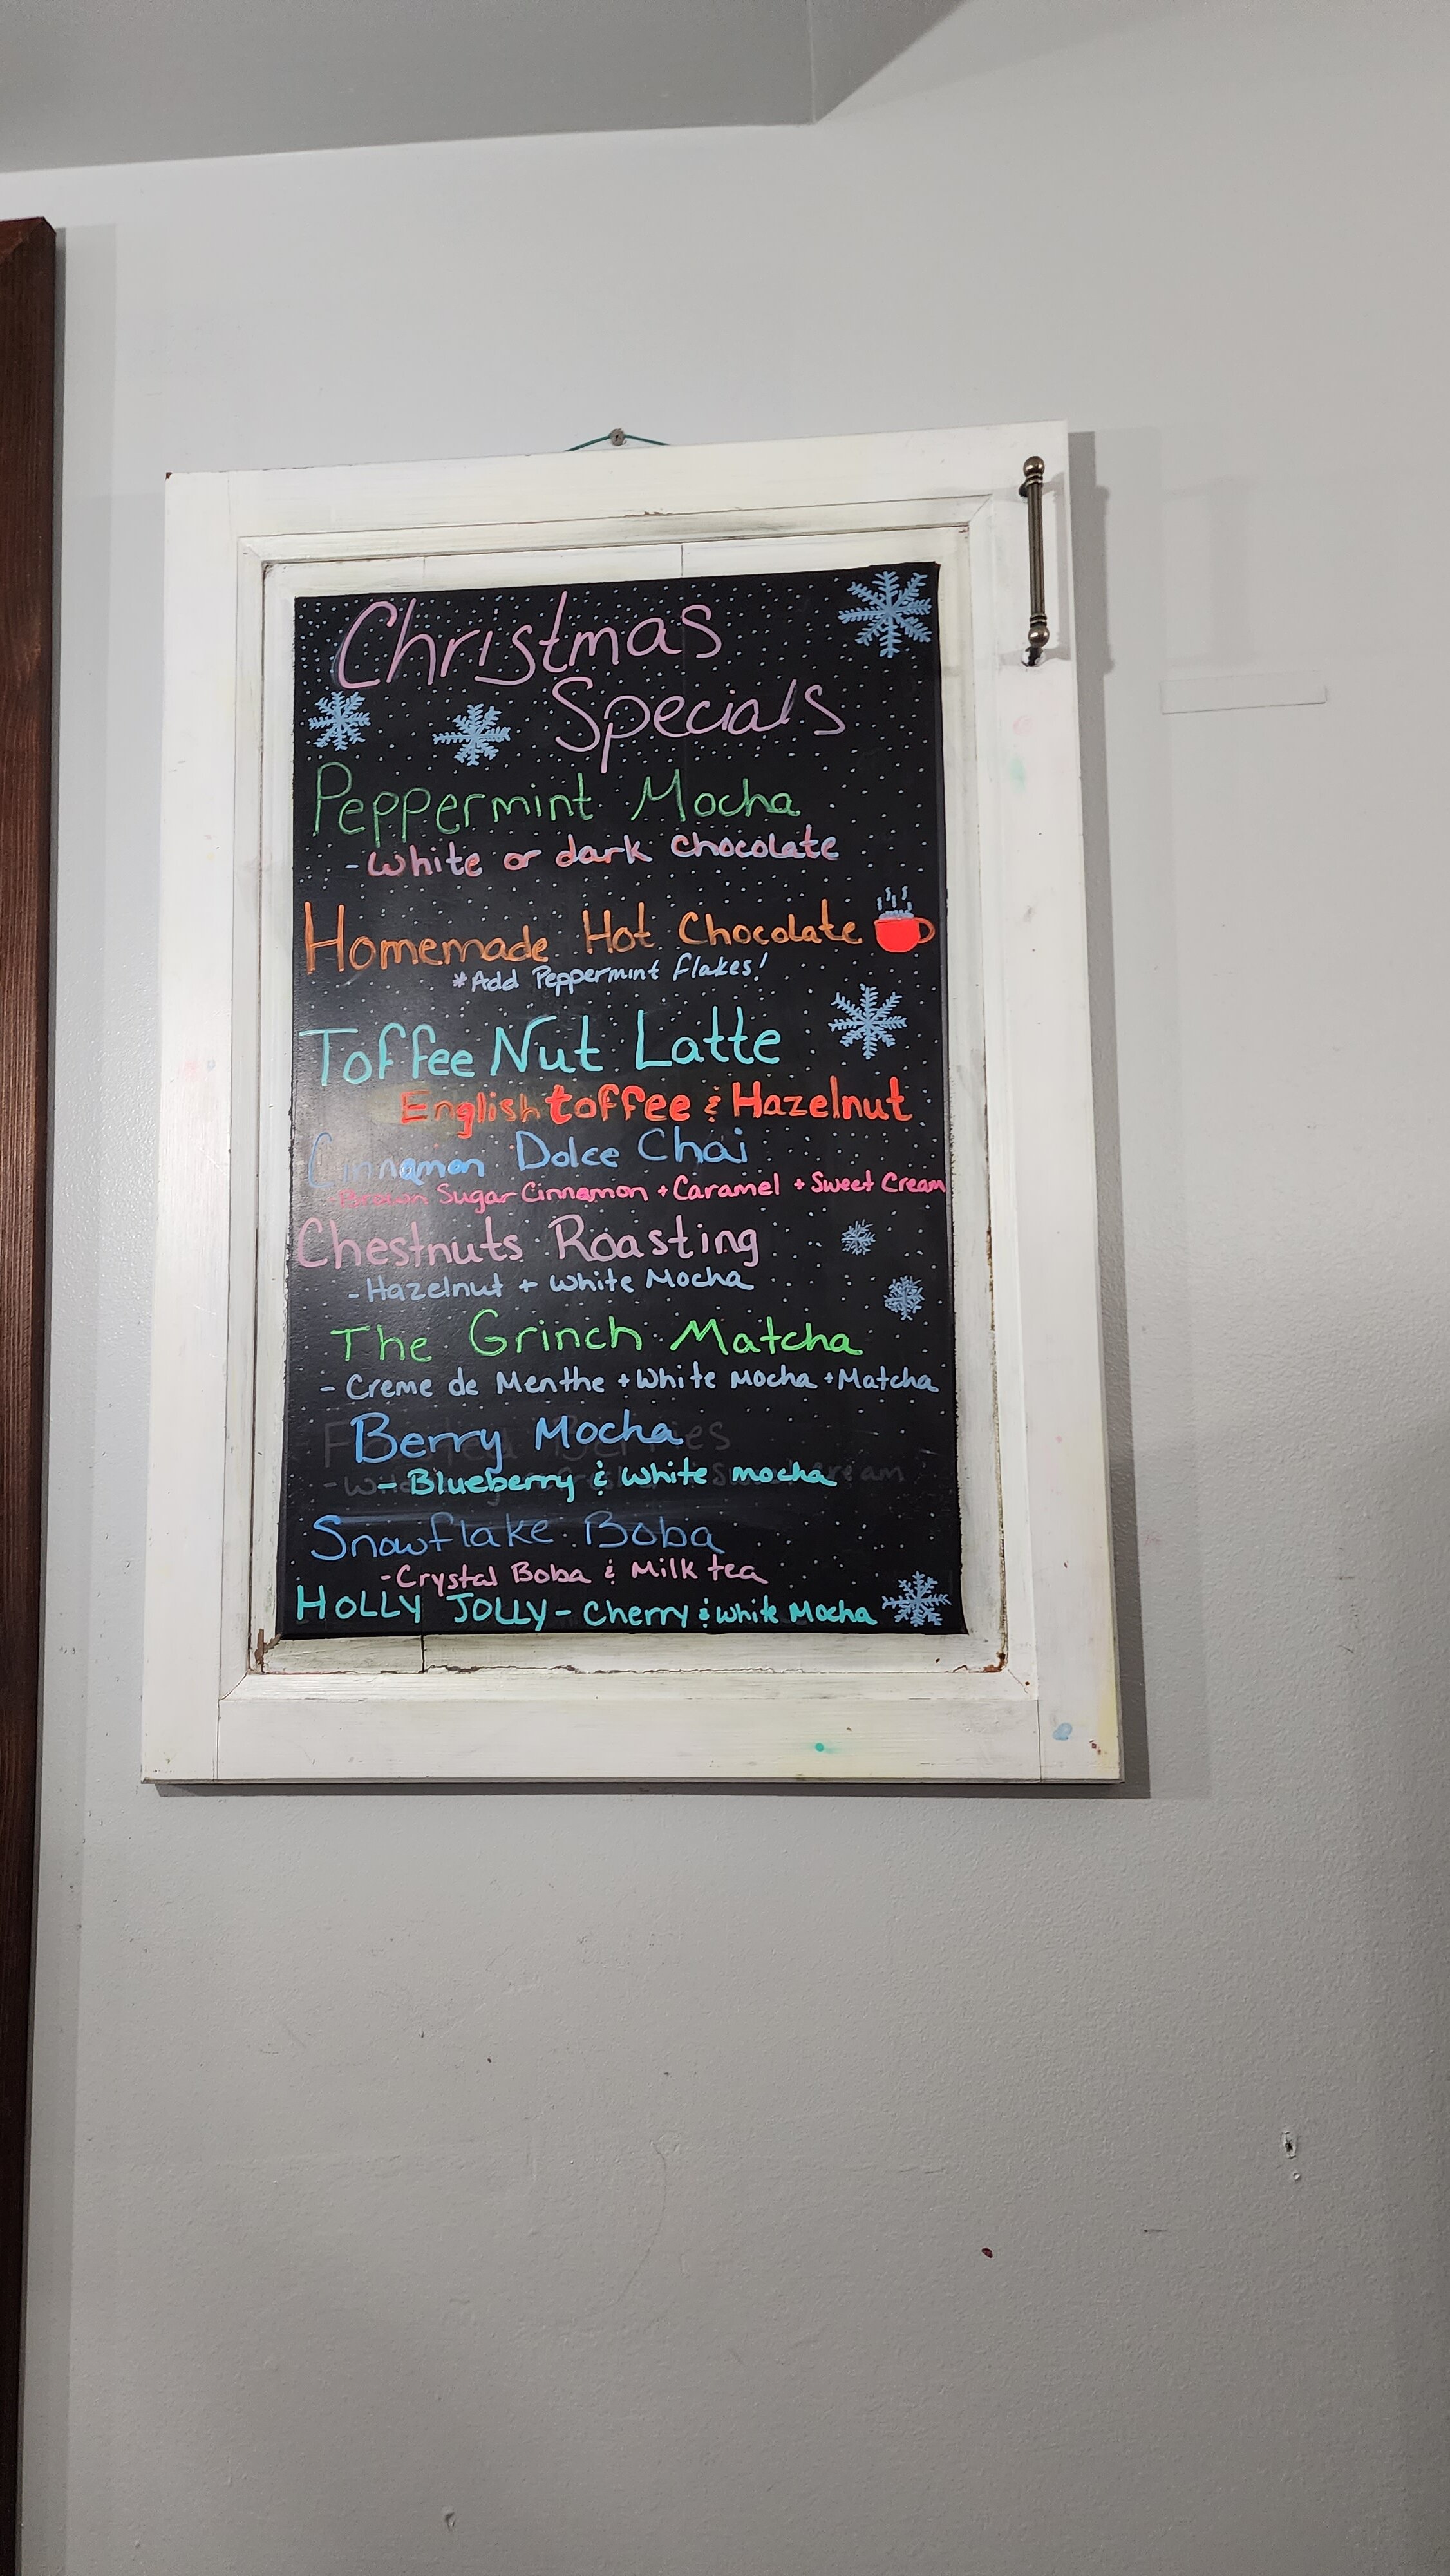 Christmas
Specials
Peppermint Mocha
- White or dark chocolate
Homemade Hot Chocolate
*Add Peppermint flakes!
Toffee Nut Latte
English toffee & Hazelnut
Cinnamon Dolce Chai
Brown Sugar Cinnamon + Caramel + Sweet Cream
Chestnuts Roasting
- Hazelnut + White Mocha
The Grinch Matcha
- Creme de Menthe + White Mocha + Matcha
Berry Mocha
- Blueberry & White mocha
Snowflake Boba
- Crystal Boba & Milk tea
HOLLY JOLLY - Cherry & White Mocha